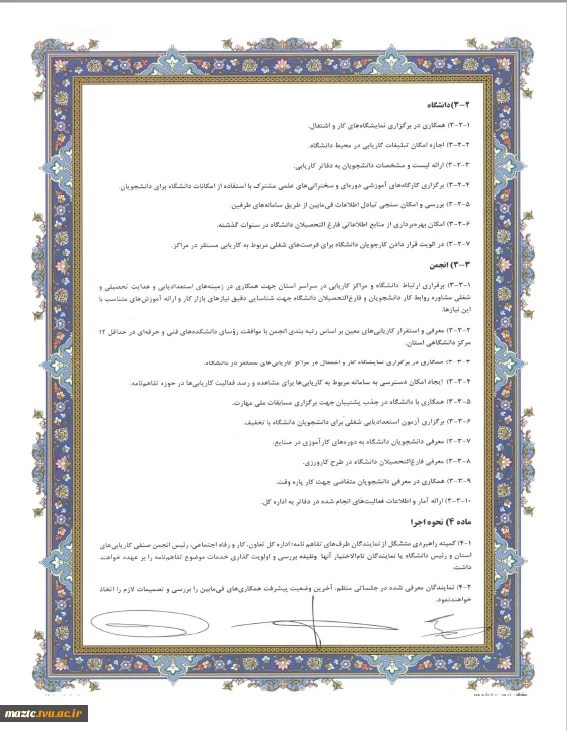 ۳-۲) دانشگاه
۳-۲-۱) همکاری در برگزاری نمایشگاه‌های کار و اشتغال.
۳-۲-۲) اجازه امکان تبلیغات کاریابی در محیط دانشگاه.
۳-۲-۳) ارائه لیست و مشخصات دانشجویان به دفاتر کاریابی.
۳-۲-۴) برگزاری کارگاه‌های آموزشی دوره‌ای و سخنرانی‌های علمی مشترک با استفاده از امکانات دانشگاه برای دانشجویان.
۳-۲-۵) بررسی و امکان سنجی تبادل اطلاعات فی‌مابین از طریق سامانه‌های طرفین.
۳-۲-۶) امکان بهره‌برداری از منابع اطلاعاتی فارغ التحصیلان دانشگاه در سنوات گذشته.
۳-۲-۷) در الویت قرار دادن کارجویان دانشگاه برای فرصت‌های شغلی مربوط به کاریابی مستقر در مراکز.
۳-۳) انجمن
۳-۳-۱) برقراری ارتباط دانشگاه و مراکز کاریابی در سراسر استان جهت همکاری در زمینه‌های استعدادیابی و هدایت تحصیلی و
شغلی مشاوره روابط کار دانشجویان و فارغ‌التحصیلان دانشگاه جهت شناسایی دقیق نیازهای بازار کار و ارائه آموزش‌های متناسب با
این نیازها.
۳-۳-۲) معرفی و استقرار کاریابی‌های معین بر اساس رتبه بندی انجمن با موافقت رؤسای دانشکده‌های فنی و حرفه‌ای در حداقل ۱۲
مرکز دانشگاهی استان.
۳-۳-۳) همکاری در برگزاری نمایشگاه کار و اشتغال در مراکز کاریابی‌های مستقر در دانشگاه.
۳-۳-۴) ایجاد امکان دسترسی به سامانه مربوط به کاریابی‌ها برای مشاهده و رصد فعالیت کاریابی‌ها در حوزه تفاهم‌نامه.
۳-۳-۵) همکاری با دانشگاه در جذب پشتیبان جهت برگزاری مسابقات ملی مهارت.
۳-۳-۶) برگزاری آزمون استعدادیابی شغلی برای دانشجویان دانشگاه با تخفیف.
۳-۳-۷) معرفی دانشجویان دانشگاه به دوره‌های کارآموزی در صنایع.
۳-۳-۸) معرفی فارغ‌التحصیلان دانشگاه در طرح کارورزی.
۳-۳-۹) همکاری در معرفی دانشجویان متقاضی جهت کار پاره وقت.
۳-۳-۱۰) ارائه آمار و اطلاعات فعالیت‌های انجام شده در دفاتر به اداره کل.
ماده ۴) نحوه اجرا
۴-۱) کمیته راهبردی متشکل از نمایندگان طرف‌های تفاهم نامه؛ اداره کل تعاون، کار و رفاه اجتماعی، رئیس انجمن صنفی کاریابی‌های
استان و رئیس دانشگاه یا نمایندگان تام‌الاختیار آنها وظیفه بررسی و اولویت گذاری خدمات موضوع تفاهم‌نامه را بر عهده خواهند
داشت.
۴-۲) نمایندگان معرفی شده در جلساتی منظم، آخرین وضعیت پیشرفت همکاری‌های فی‌مابین را بررسی و تصمیمات لازم را اتخاذ
خواهندنمود.
maztc.tvu.ac.ir